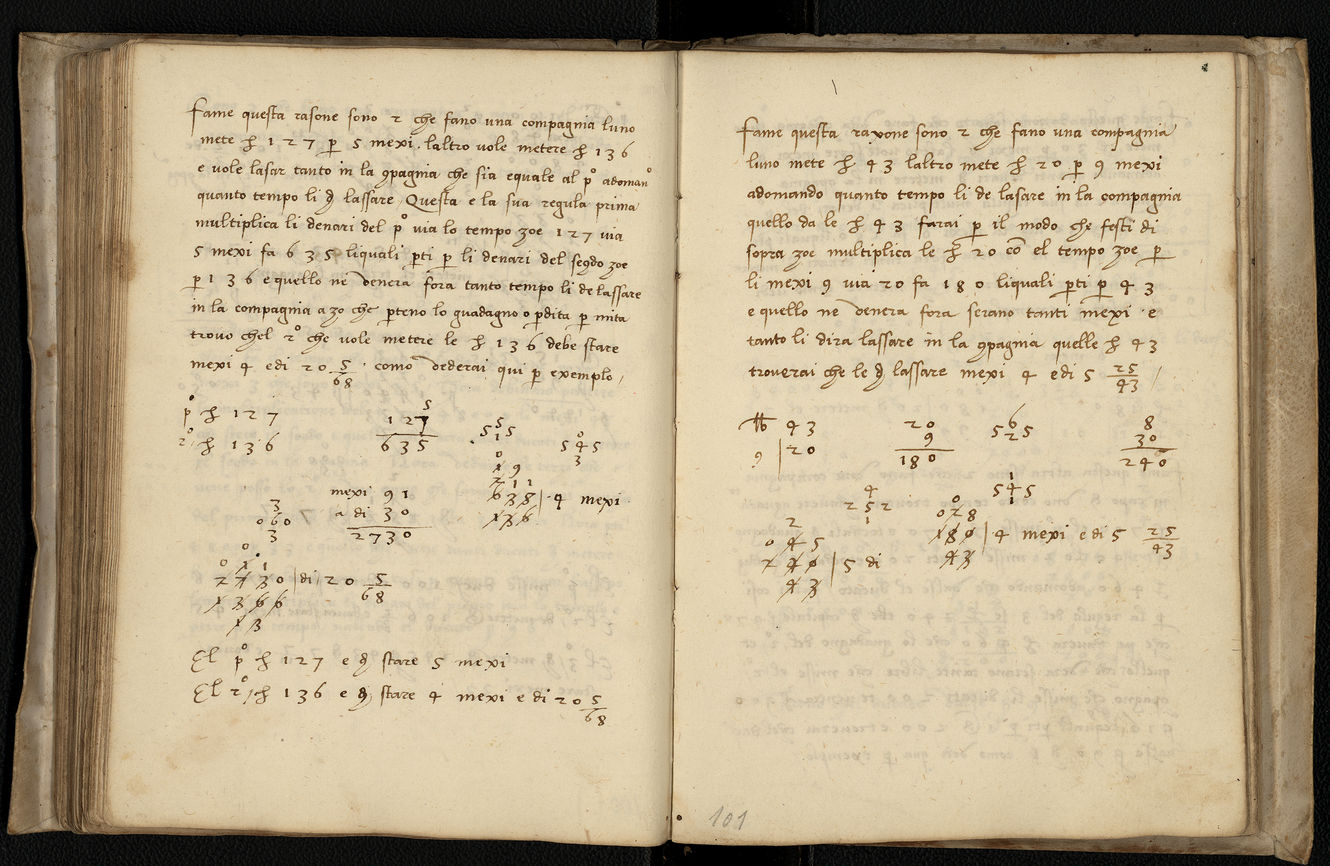 Fame questa rasone sono 2 che fano una compagnia luno
mete ħ 127 ꝑ 5 mexi · laltro vole metere ħ 136
e vole lasar tanto in la ꝯpagnia che sia equale al pº adomanº
quanto tempo li ꝺ lassare · Questa e la sua regula prima
multiplica li denari del pº via lo tempo zoe 127 via
5 mexi fa 635 liquali ꝑti ꝑ li denari del segdo zoe
ꝑ 136 e quello ne denera fora tanto tempo li de lassare
in la compagnia a zo che ꝑteno lo guadagno o ꝑdita ꝑ mita
trovo chel 2º che vole metere le ħ 136 debe stare
mexi 4 e di 20 5/68 · como dederai qui ꝑ exemplo /
pº ħ 127
2º ħ 136
5
127
635
5
5 1 5
0
5 4 5
3
mexi 91
a di 30
2730
3
0 6 0
3
0
1 9
2 1 1
6 3 8 | 4 mexi
1 3 6
0
0 1 1
2 7 3 0 | di | 20 5/68
1 3 6 6
1 3
El pº ħ 127 e ꝺ stare 5 mexi
El 2º / ħ 136 e ꝺ stare 4 mexi e di 20 5/68
Fame questa raxone sono 2 che fano una compagnia
luno mete ħ 43 laltro mete ħ 20 ꝑ 9 mexi
adomando quanto tempo li de lasare in la compagnia
quello da le ħ 43 farai ꝑ il modo che festi di
sopra zoe multiplica le ħ 20 cõ el tempo zoe ꝑ
li mexi 9 via 20 fa 180 liquali ꝑti ꝑ 43
e quello ne denera fora serano tanti mexi · e
tanto li dira lassare in la ꝯpagnia quelle ħ 43
troverai che le ꝺ lassare mexi 4 e di 5 25/43 /
43
9 | 20
20
9
180
6
5 2 5
8
30
240
4
2 5 2
1
1
5 4 5
1
2
0 4 5
2 4 0 | 5 di
4 3
0
0 2 8
1 8 0 | 4 mexi e di 5 25/43
4 3
101